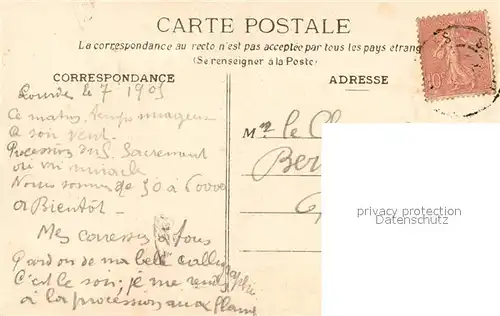 CARTE POSTALE
La correspondance au recto n'est pas acceptée par tous les pays étrang
(Se renseigner à la Poste)
CORRESPONDANCE
ADRESSE
Lourdes le 7 1905
Ce matin, temps nuageux
Ce soir vent.
Procession du S. Sacrement
miracle
Nous sommes de 50 à 60000
A Bientôt
Mes caresses à tous
Pardon de ma belle calligraphie
C'est le soir, je me rends
à la procession aux flamb
Mr le
Ber
privacy protection
Datenschutz
10